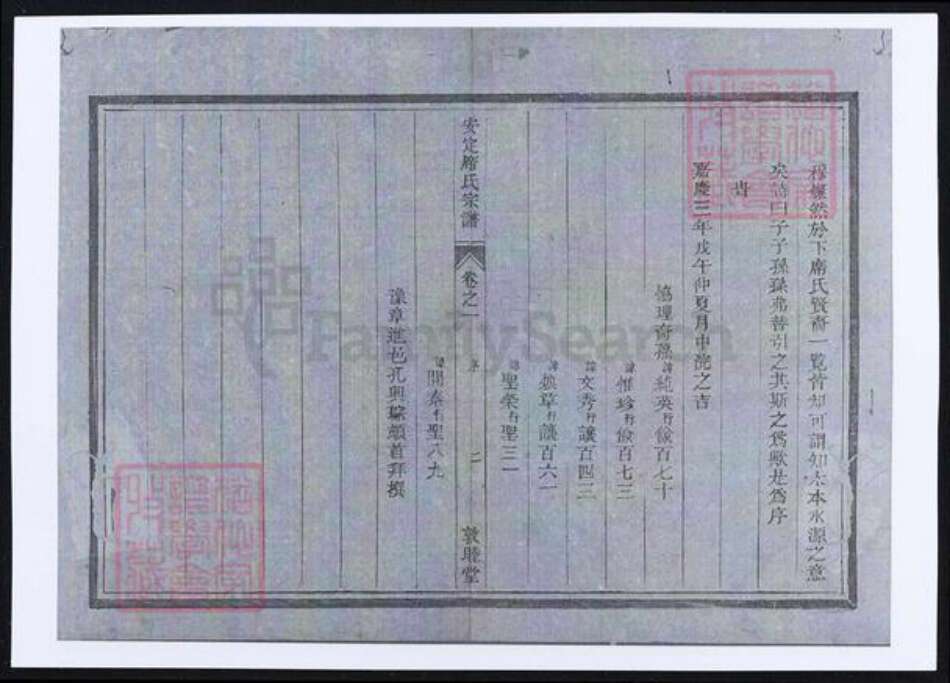 穆燦然於下席氏賢裔一覧皆知可謂知木本水源之意
矣詩曰子子孫孫弗替引之其斯之為歟是為序
峕
嘉慶三年戊午仲夏月中浣之吉
協理裔孫諱純英行儉百七十
諱惟珍行儉百七三
諱文秀行讓百四三
諱煥章行讓百六一
諱聖榮行聖三一
諱開泰行聖八九
豫章進邑孔興 頓首拜撰
安定席氏宗譜 卷之一 序 二 敦睦堂
FamilySearch